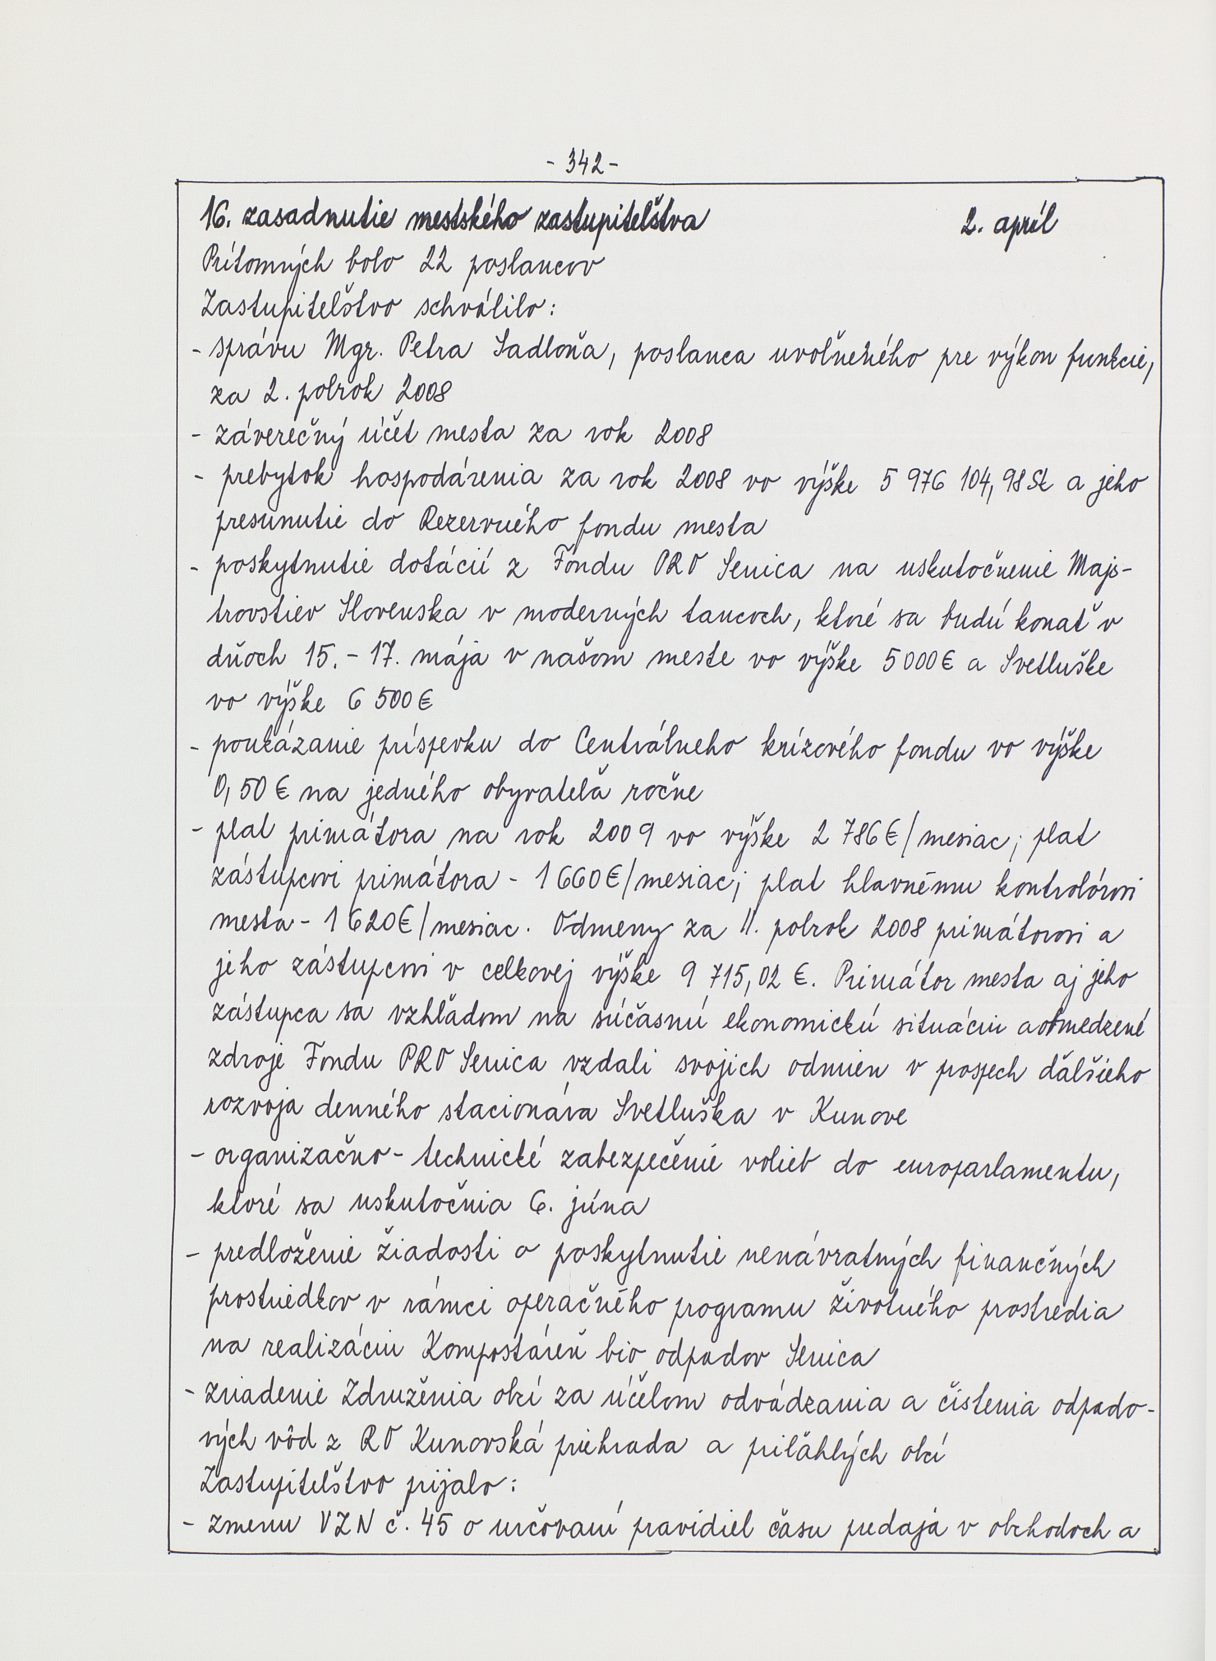 - 342 -
16. zasadnutie mestského zastupiteľstva 2. apríl
Prítomných bolo 22 poslancov
Zastupiteľstvo schválilo:
- správu Mgr. Petra Sadloňa, poslanca uvoľneného pre výkon funkcie,
za 2. polrok 2008
- záverečný účet mesta za rok 2008
- prebytok hospodárenia za rok 2008 vo výške 5 976 104,98 Sk a jeho
presunutie do Rezervného fondu mesta
- poskytnutie dotácií z Fondu PRO Senica na uskutočnenie Maj-
strovstiev Slovenska v moderných tancoch, ktoré sa budú konať v
dňoch 15. - 17. mája v našom meste vo výške 5 000 € a Svetluške
vo výške 6 500 €
- poukázanie príspevku do Centrálneho krízového fondu vo výške
0,50 € na jedného obyvateľa ročne
- plat primátora na rok 2009 vo výške 2 786 €/mesiac; plat
zástupcovi primátora - 1 660 €/mesiac; plat hlavnému kontrolórovi
mesta - 1 620 €/mesiac. Odmeny za II. polrok 2008 primátorovi a
jeho zástupcovi v celkovej výške 9 715,02 €. Primátor mesta aj jeho
zástupca sa vzhľadom na súčasnú ekonomickú situáciu a obmedzené
zdroje Fondu PRO Senica vzdali svojich odmien v prospech ďalšieho
rozvoja denného stacionára Svetluška v Kunove
- organizačno - technické zabezpečenie volieb do europarlamentu,
ktoré sa uskutočnia 6. júna
- predloženie žiadosti o poskytnutie nenávratných finančných
prostriedkov v rámci operačného programu životného prostredia
na realizáciu Kompostáreň bio odpadov Senica
- zriadenie Združenia obcí za účelom odvádzania a čistenia odpado-
vých vôd z RO Kunovská priehrada a priľahlých obcí
Zastupiteľstvo prijalo:
- zmenu VZN č. 45 o určovaní pravidiel času predaja v obchodoch a